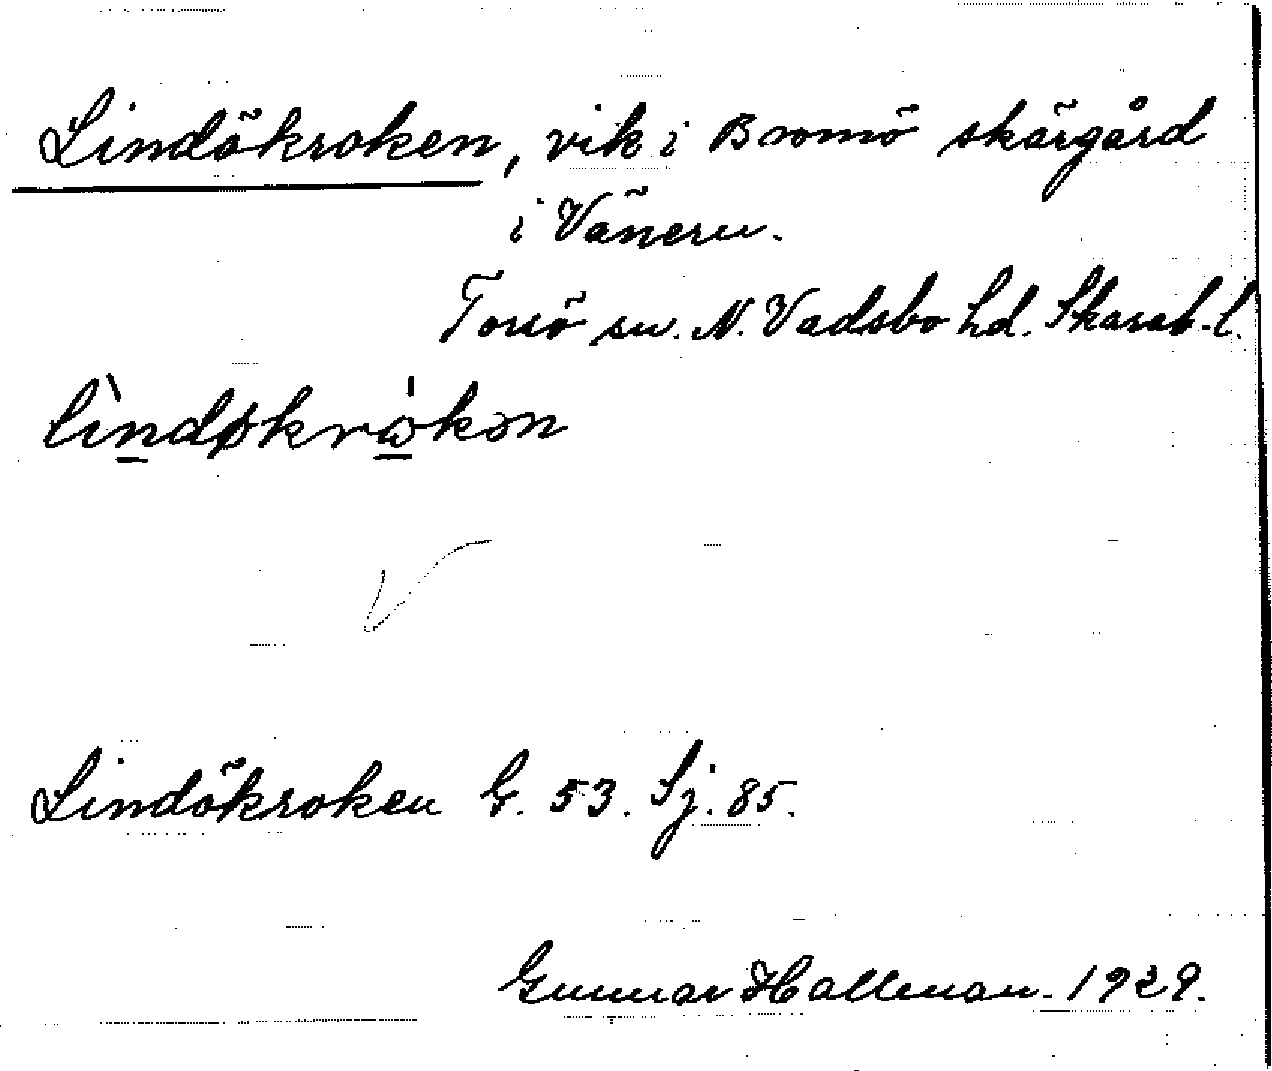 Lindökroken, vik i Bromö skärgård
i Vänern.
Torsö sn. N. Vadsbo hd. Skarab. l.
lìndøkrω̍kən
Lindökroken G. 53. Sj. 85.
Gunnar Hallman. 1929.